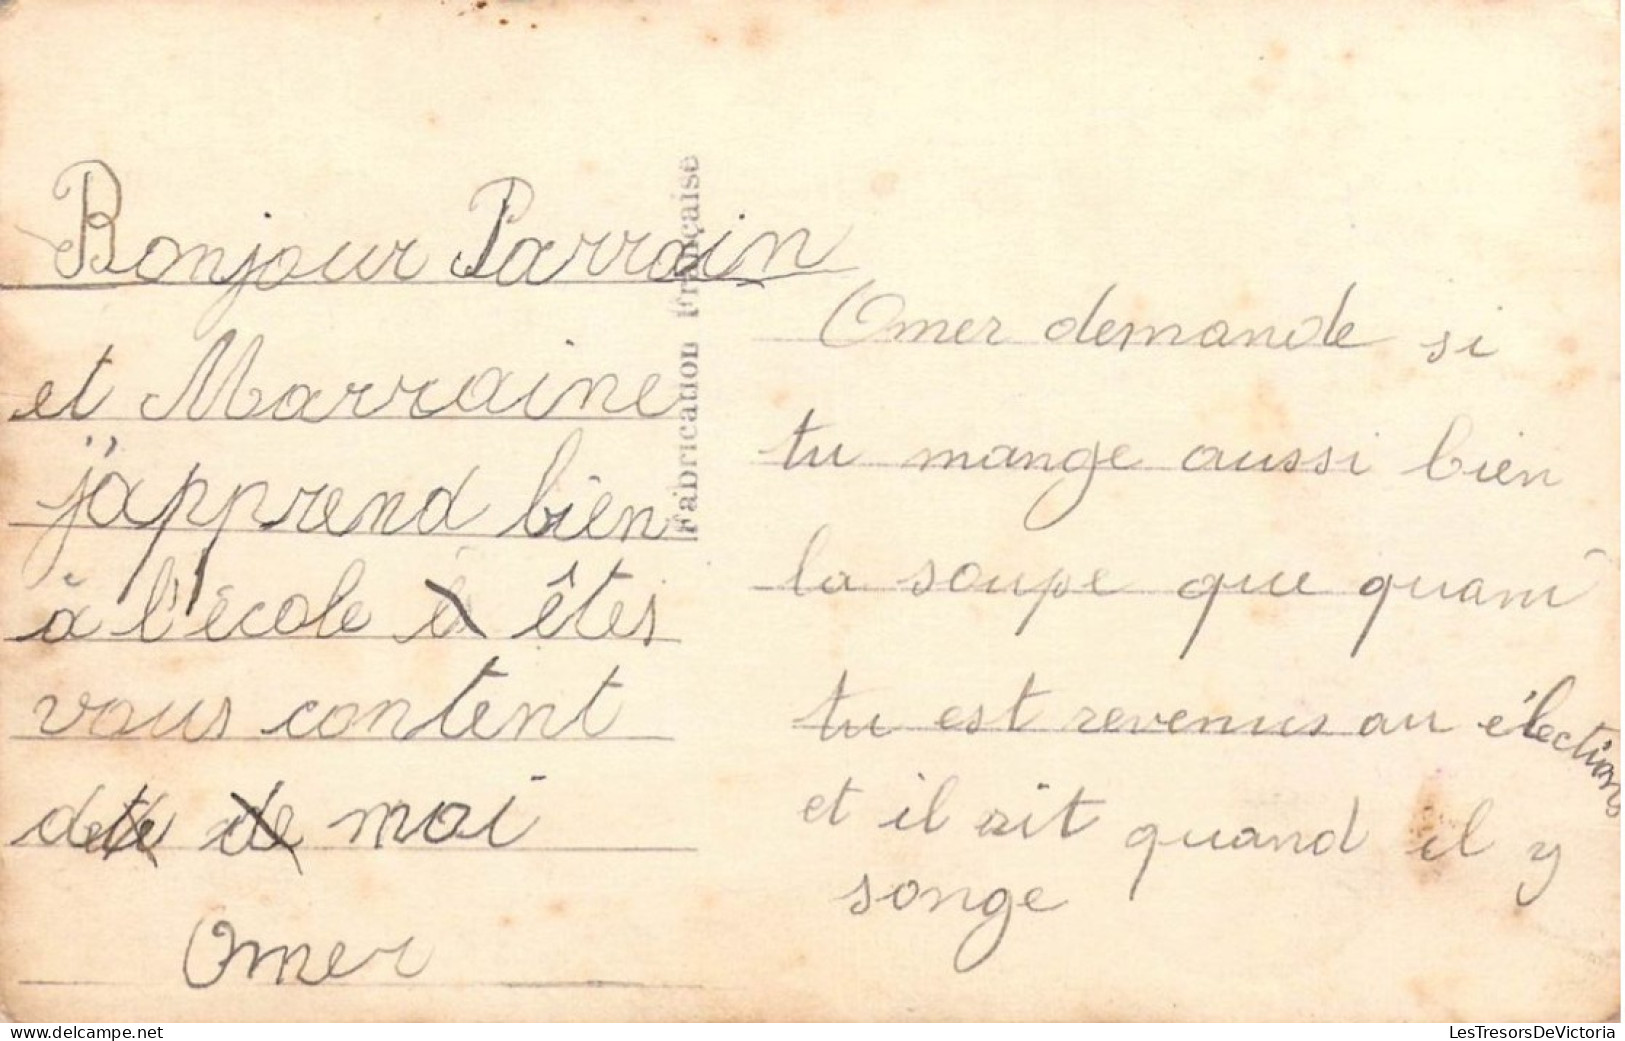 Bonjour Parrain
et Marraine
j'apprend bien
à l'école êtes
vous content
de moi
Omer
Fabrication Française
Omer demande si
tu mange aussi bien
la soupe que quant
tu est revenus au élections
et il rit quand il y
songe
LesTresorsDeVictoria
www.delcampe.net